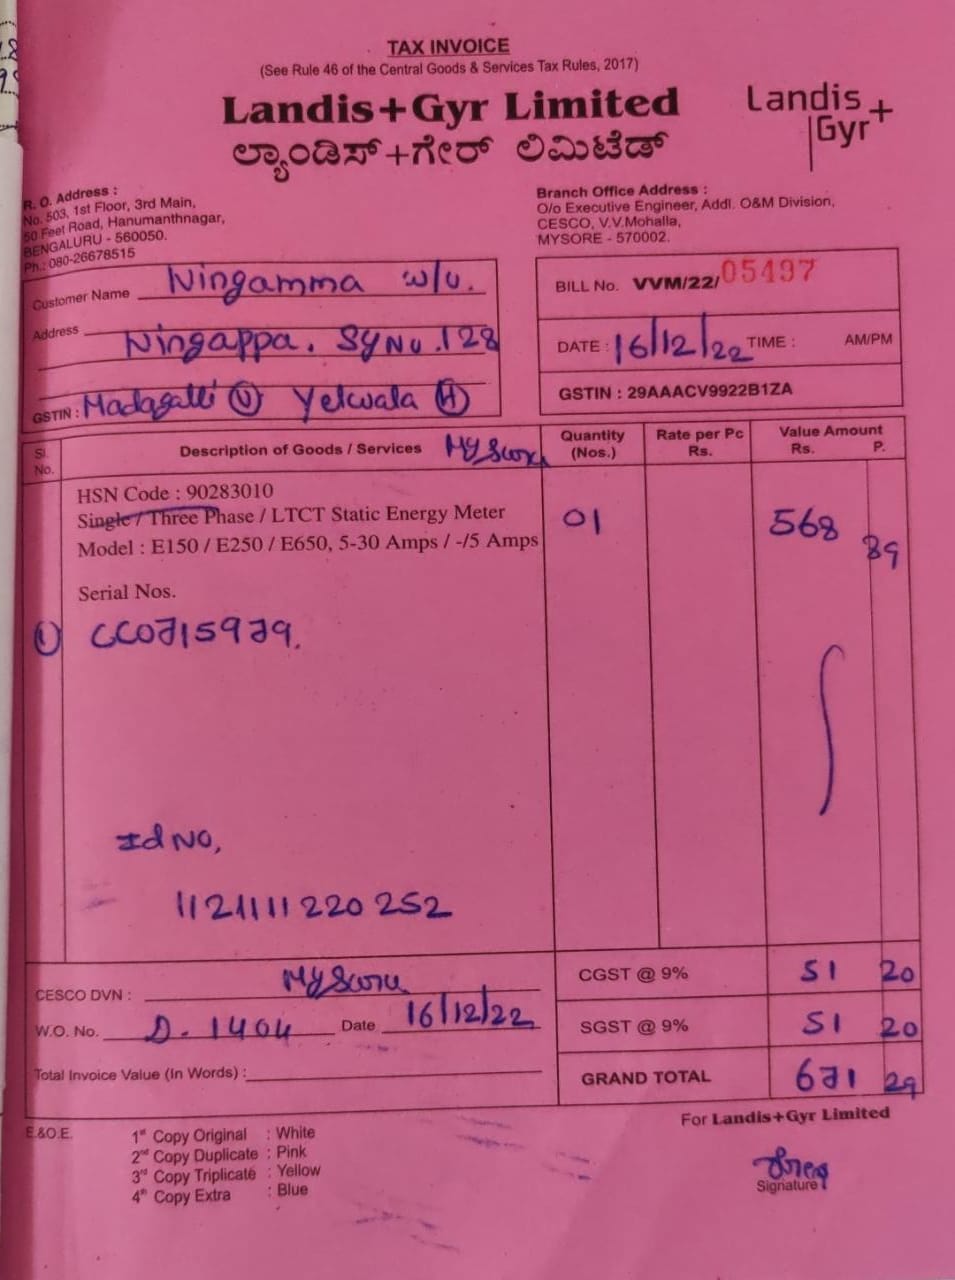 TAX INVOICE
(See Rule 46 of the Central Goods & Services Tax Rules, 2017)
Landis+Gyr Limited
ಲ್ಯಾಂಡಿಸ್+ಗೇರ್ ಲಿಮಿಟೆಡ್
Landis
Gyr+
R. O. Address :
No. 503, 1st Floor, 3rd Main,
50 Feet Road, Hanumanthnagar,
BENGALURU - 560050.
Ph.: 080-26678515
Branch Office Address :
O/o Executive Engineer, Addl. O&M Division,
CESCO, V.V.Mohalla,
MYSORE - 570002.
Customer Name Ningamma w/o.
Address Ningappa. SyNo.128
GSTIN : Madagalli (V) Yelwala (H)
Mysore
BILL No. VVM/22/05497
DATE : 16/12/22 TIME : AM/PM
GSTIN : 29AAACV9922B1ZA
Sl. No. Description of Goods / Services Quantity (Nos.) Rate per Pc Rs. Value Amount Rs. P.
HSN Code : 90283010
Single / Three Phase / LTCT Static Energy Meter 01 568 89
Model : E150 / E250 / E650, 5-30 Amps / -/5 Amps
Serial Nos.
1) CC0715979.
Id No,
1121111220252
CESCO DVN : Mysore
CGST @ 9% 51 20
W.O. No. D-1404 Date 16/12/22
SGST @ 9% 51 20
Total Invoice Value (In Words) :
GRAND TOTAL 671 29
E.&O.E.
1st Copy Original : White
2nd Copy Duplicate : Pink
3rd Copy Triplicate : Yellow
4th Copy Extra : Blue
For Landis+Gyr Limited
Signature